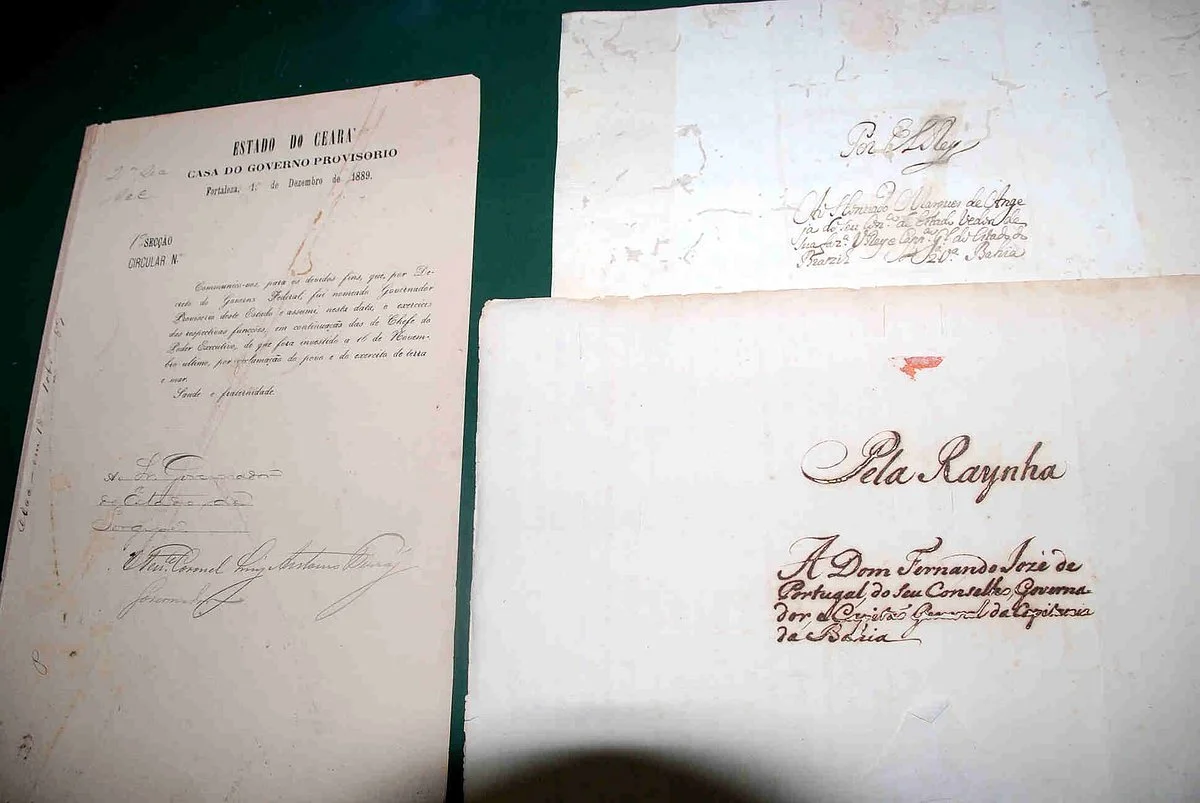 ESTADO DO CEARÁ
CASA DO GOVERNO PROVISORIO
Fortaleza, 1º de Dezembro de 1889.
1ª SECÇÃO
CIRCULAR N.
Communico-vos, para os devidos fins, que, por De-
creto do Governo Federal fui nomeado Governador
Provisorio deste Estado e assumi, nesta data, o exercicio
das respectivas funcções, em continuação das de Chefe do
Poder Executivo, de que fora investido a 16 de Novem-
bro ultimo, por acclamação do povo e do exercito de terra
e mar.
Saude e fraternidade.
Ao Sr. Governador
do Estado de
Sergipe
Coronel Luiz Antonio Ferraz
Por El Rey
Ao Honrado Marques de Ange
ja do seu Con.º de Estado Vedor de
sua faz.ª V. Rey e Capp.ᵐ G.ˡ do Estado do
Brazil Bahia
Pela Raynha
A Dom Fernando Jozé de
Portugal do seu Conselho, Governa
dor, e Capitão General da Capitania
da Bahia